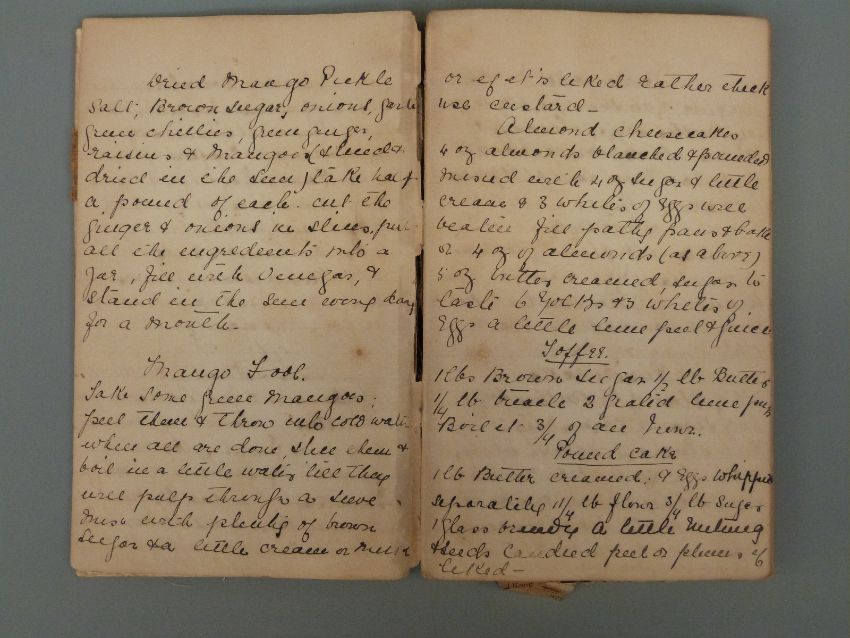 Dried Mango Pickle
Salt, Brown sugar, onions, garli
green chillies, green ginger,
raisins & Mangoes (sliced &
dried in the sun) take half
a pound of each. cut the
ginger & onions in slices, put
all the ingredients into a
Jar, fill with Vinegar, &
stand in the sun every day
for a month.
Mango Fool.
Take some green mangoes;
peel them & throw into cold water
when all are done, slice them &
boil in a little water till they
will pulp through a sieve
Mix with plenty of brown
sugar & a little cream or milk
or if it is liked rather thick
use custard _
Almond cheesecakes
4 oz almonds blanched & pounded
mixed with 4 oz sugar & little
cream & 3 whites of Eggs well
beaten fill patty pans & bake
or 4 oz of almonds (as above)
5 oz butter creamed, sugar to
taste 6 yolks & 3 whites of
Eggs a little lime peel & juice
Toffee.
1 lbs Brown Sugar 1/2 lb Butter
1/4 lb treacle 2 grated lime
Boil it 3/4 of an hour.
Pound cake
1 lb Butter creamed, Eggs whipped
separately 1 1/4 lb flour 3/4 lb Sugar
1 glass brandy a little Nutmeg
& seeds candied peel or plums if
liked _